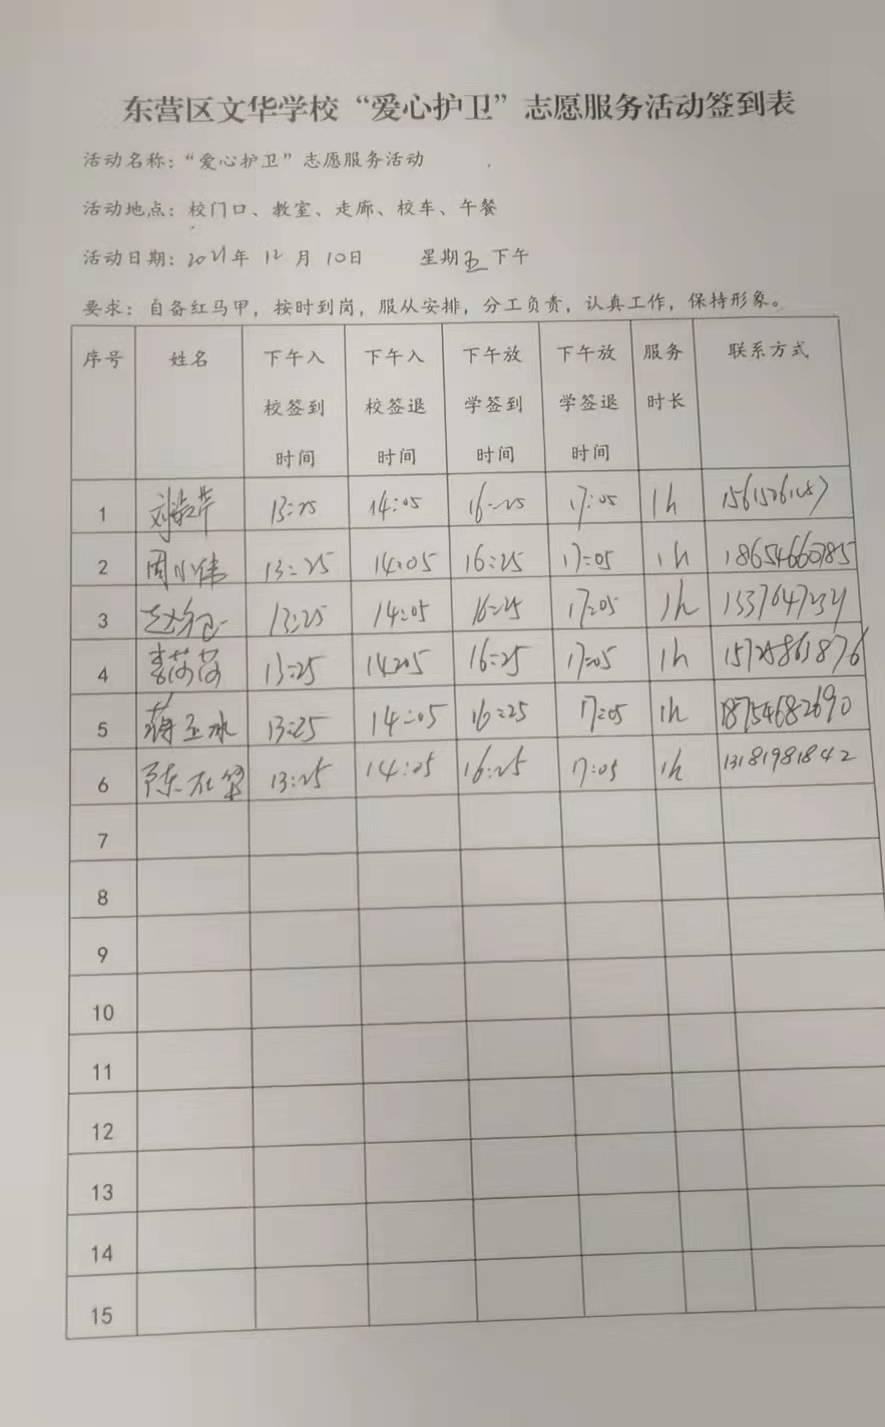 东营区文华学校“爱心护卫”志愿服务活动签到表
活动名称：“爱心护卫”志愿服务活动
活动地点：校门口、教室、走廊、校车、午餐
活动日期：2021年 12 月 10日 星期五下午
要求：自备红马甲，按时到岗，服从安排，分工负责，认真工作，保持形象。
序号 姓名 下午入 下午入 下午放 下午放 服务 联系方式
校签到 校签退 学签到 学签退 时长
时间 时间 时间 时间
1 13:25 14:05 16:25 17:05 1h
2 周小伟 13:25 14:05 16:25 17:05 1h 18654660785
3 13:25 14:05 16:25 17:05 1h
4 李荷荷 13:25 14:05 16:25 17:05 1h 15725863876
5 蒋玉冰 13:25 14:05 16:25 17:05 1h 18754682690
6 13:25 14:05 16:25 17:05 1h 13181981842
7
8
9
10
11
12
13
14
15